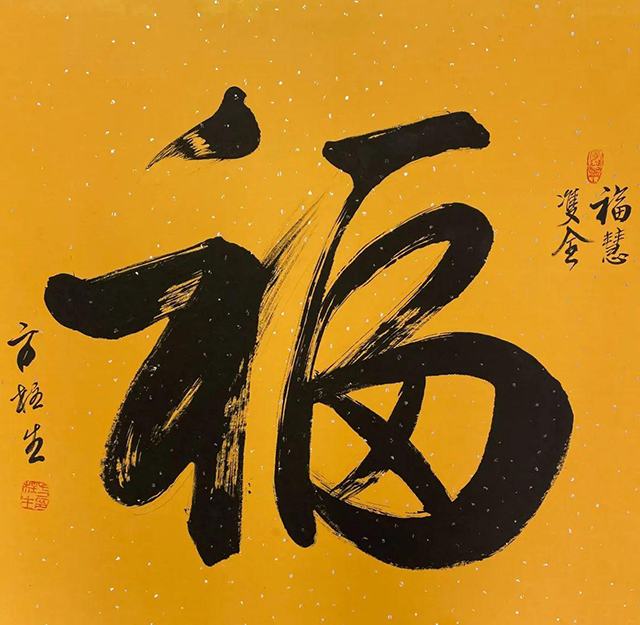 福慧
雙全
福
方生